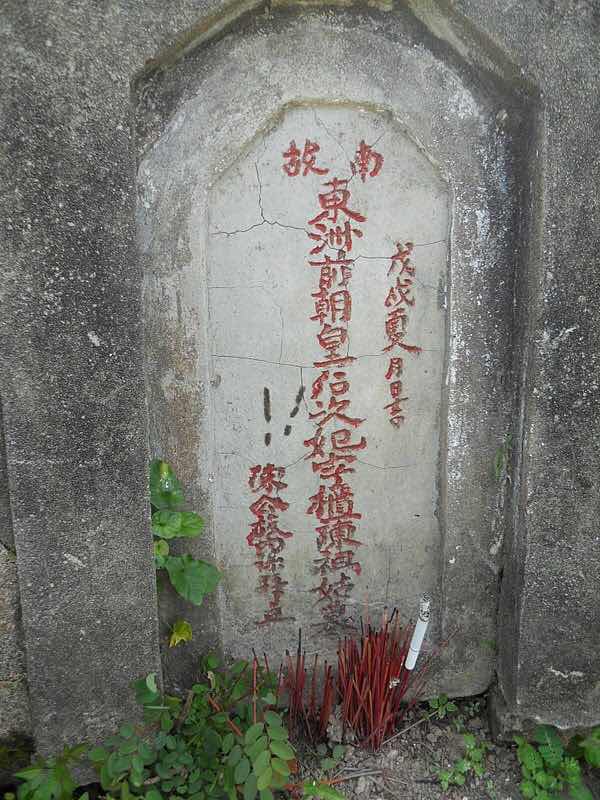 南故
戊戌夏月日吉
東洲前朝皇后次妃字櫃陳祖姑墓
陳合孫等立